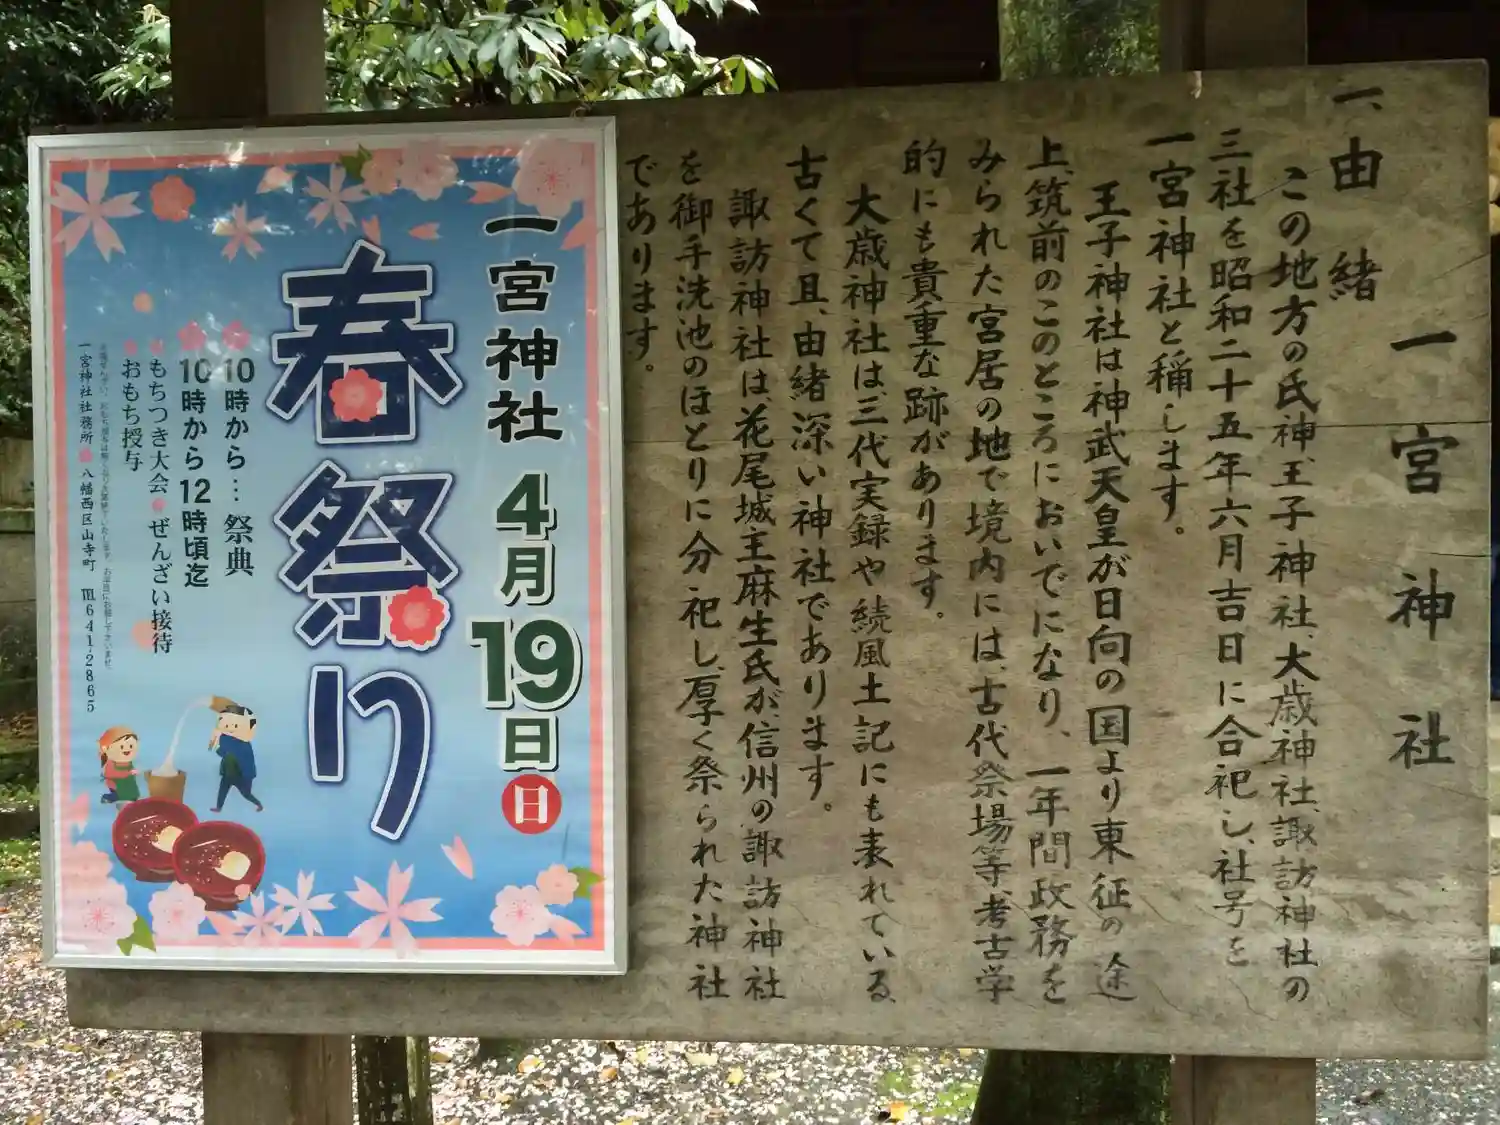 一宮神社
一、由緒
この地方の氏神、王子神社、大歳神社、諏訪神社の
三社を昭和二十五年六月吉日に合祀し、社号を
一宮神社と稱します。
王子神社は神武天皇が日向の国より東征の途
上、筑前のこのところにおいでになり、一年間政務を
みられた宮居の地で境内には、古代祭場等考古学
的にも貴重な跡があります。
大歳神社は、三代実録や続風土記にも表れている
古くて且、由緒深い神社であります。
諏訪神社は花尾城主麻生氏が、信州の諏訪神社
を御手洗池のほとりに分祀し、厚く祭られた神社
であります。
一宮神社 4月19日 日
春祭り
10時から… 祭典
10時から12時頃迄
もちつき大会 ぜんざい接待
おもち授与
一宮神社社務所 八幡西区山寺町 ℡641-2865